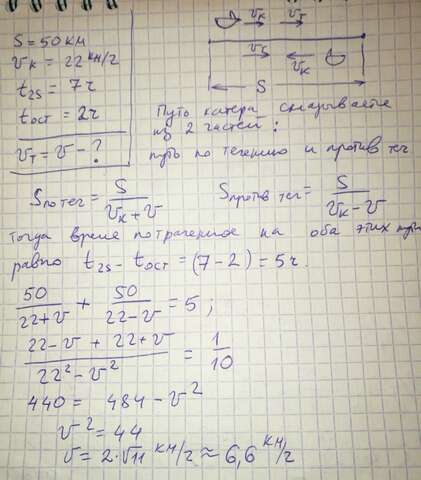 S = 50 км
v_к = 22 км/г
t_2s = 7 г
t_ост = 2 г
v_т = v - ?
v_к v_т
v_s v_к
S
Путь катера складывается
из 2 частей:
путь по течению и против теч
S_по теч = S/(v_к + v) S_против теч = S/(v_к - v)
тогда время потраченное на оба этих пути
равно t_2s - t_ост = (7 - 2) = 5 г.
50/(22+v) + 50/(22-v) = 5;
(22 - v + 22 + v)/(22² - v²) = 1/10
440 = 484 - v²
v² = 44
v = 2·√11 км/г ≈ 6,6 км/г